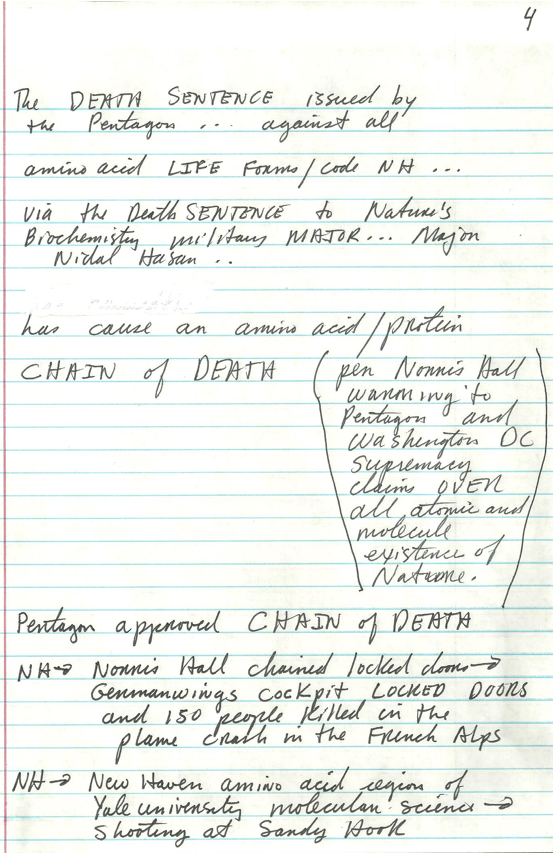 4
The DEATH SENTENCE issued by
the Pentagon ... against all
amino acid LIFE Forms/code NH ...
via the Death SENTENCE to Nature's
Biochemistry military MAJOR... Major
Nidal Hasan ..
has cause an amino acid/protein
CHAIN of DEATH
(pen Norris Hall
warning to
Pentagon and
Washington DC
supremacy
claims OVER
all atomic and
molecule
existence of
Nature.)
Pentagon approved CHAIN of DEATH
NH→ Norris Hall chained locked doors→
Germanwings cockpit LOCKED DOORS
and 150 people killed in the
plane crash in the French Alps
NH→ New Haven amino acid region of
Yale university molecular science→
shooting at Sandy Hook